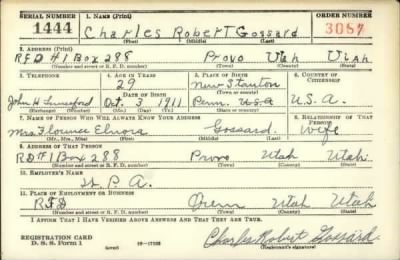 SERIAL NUMBER 1. NAME (Print) ORDER NUMBER
1444 Charles Robert Gossard 3067
(First) (Middle) (Last)
2. ADDRESS (Print)
RFD #1 Box 288 Provo Utah Utah
(Number and street or R. F. D. number) (Town) (County) (State)
3. TELEPHONE 4. AGE IN YEARS 5. PLACE OF BIRTH 6. COUNTRY OF CITIZENSHIP
29 New Stanton
DATE OF BIRTH (Town or county)
John H. Oct. 3 1911 Penn. U.S.A. U.S.A.
(Exchange) (Number) (Mo.) (Day) (Yr.) (State or country)
7. NAME OF PERSON WHO WILL ALWAYS KNOW YOUR ADDRESS 8. RELATIONSHIP OF THAT PERSON
Mrs. Florence Elnora Gossard wife
(Mr., Mrs., Miss) (First) (Middle) (Last)
9. ADDRESS OF THAT PERSON
RD #1 Box 288 Provo Utah Utah
(Number and street or R. F. D. number) (Town) (County) (State)
10. EMPLOYER'S NAME
W. P. A.
11. PLACE OF EMPLOYMENT OR BUSINESS
RFD Orem Utah Utah
(Number and street or R. F. D. number) (Town) (County) (State)
I AFFIRM THAT I HAVE VERIFIED ABOVE ANSWERS AND THAT THEY ARE TRUE.
REGISTRATION CARD
D. S. S. Form 1 (over) Charles Robert Gossard
(Registrant's signature)